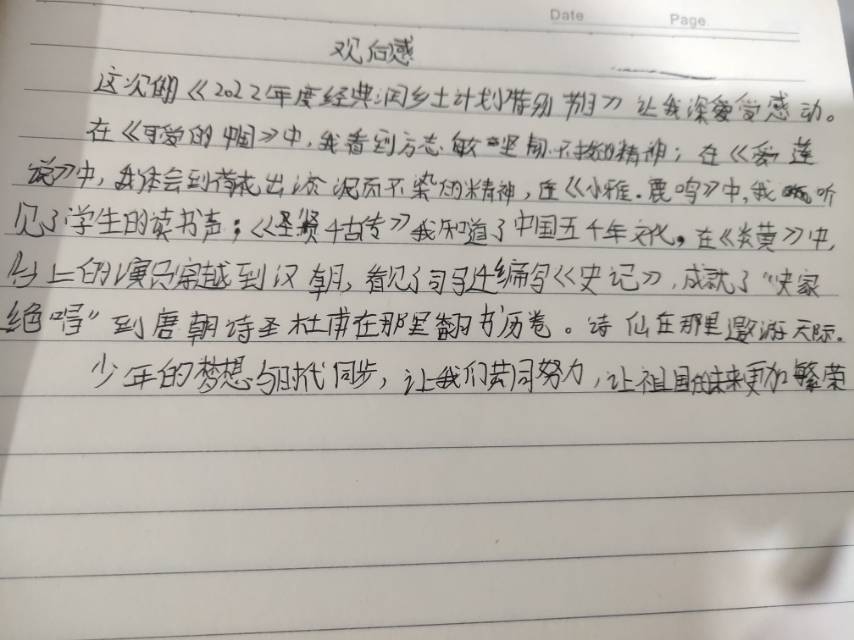 Date Page
观后感
这次的《2022年度经典润乡土计划特别节目》让我深受感动。
在《可爱的中国》中,我看到方志敏坚韧不拔的精神;在《爱莲
说》中,我体会到荷花出淤泥而不染的精神,在《小雅·鹿鸣》中,我听
见了学生的读书声;《圣贤千古传》我知道了中国五千年文化。在《炎黄》中,
台上的演员穿越到汉朝,看见了司马迁编写《史记》,成就了“史家
绝唱”到唐朝诗圣杜甫在那里翻书历卷。诗仙在那里遨游天际.
少年的梦想与时代同步,让我们共同努力,让祖国的未来更加繁荣